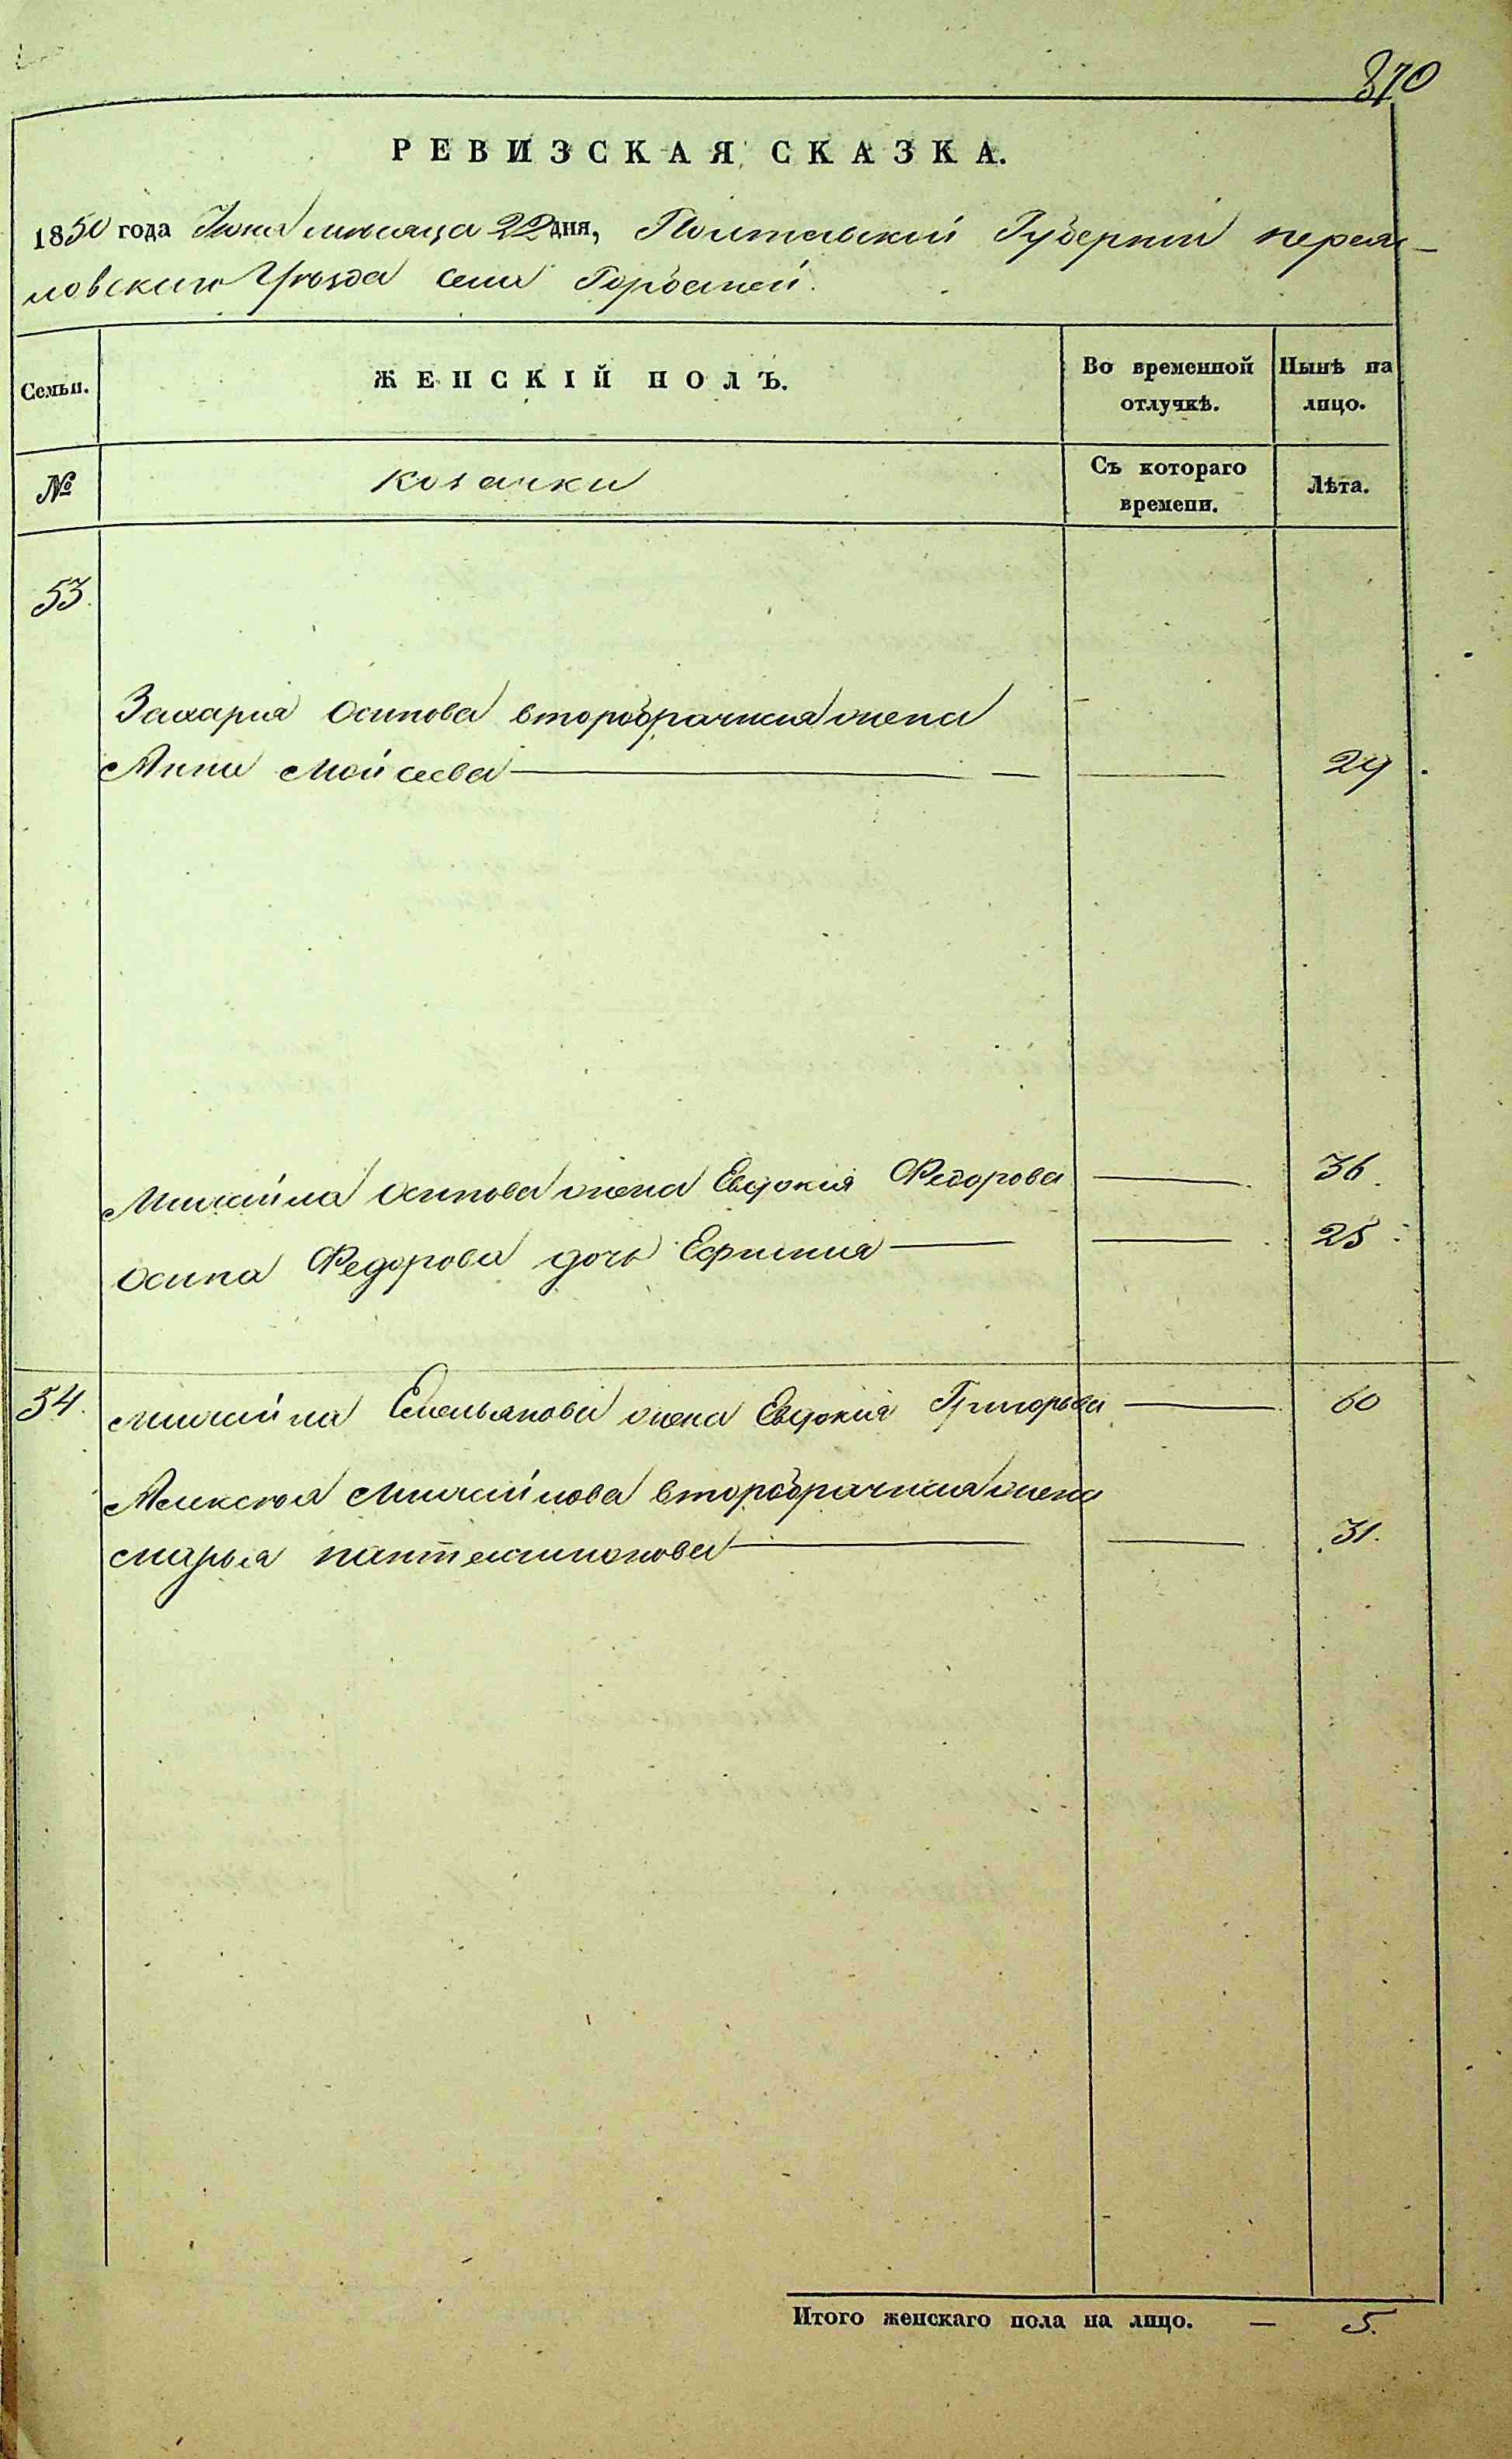 370
РЕВИЗСКАЯ СКАЗКА.
1850 года Июня месяца 22 дня, Полтавской Губернии переяс-
ловского Уезда села Горбаней.
Семьи. ЖЕНСКІЙ ПОЛЪ. Во временной отлучкѣ. Нынѣ на лицо.
№ Козачки Съ котораго времени. Лѣта.
53.
Захария Осипова второбрачная жена
Анна Мойсеева — — 29.
Михайла Осипова жена Евдокия Федорова — 36.
Осипа Федорова дочь Ефимия — — 25
54. Михайла Емельянова жена Евдокия Григорьева — 60
Алексея Михайлова второбрачная жена
Марья пантелимонова — — 31.
Итого женскаго пола на лицо. — 5.